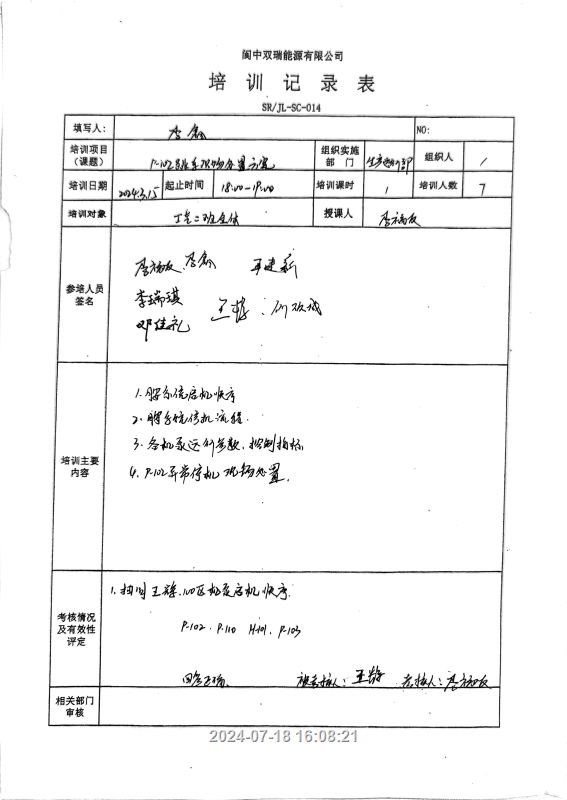 阆中双瑞能源有限公司
培训记录表
SR/JL-SC-014
填写人： 李鑫 NO:
培训项目（课题） P-102 现场处置方案 组织实施部门 生产 部 组织人 /
培训日期 2024.3.15 起止时间 18:00-19:00 培训课时 1 培训人数 7
培训对象 二班全体 授课人 李
参培人员签名
李 李鑫 王建新
李瑞琪
邓佳礼 王
培训主要内容
1. 脱 系统启机顺序
2. 脱 系统停机流程.
3. 各机泵运行参数、控制指标
4. P-102异常停机 现场处置.
考核情况及有效性评定
1. 抽问王 . 100区机泵启机顺序.
P-102. P-110 H-101. P-103
回答正确. 被考核人： 王 考核人： 李
相关部门审核
2024-07-18 16:08:21